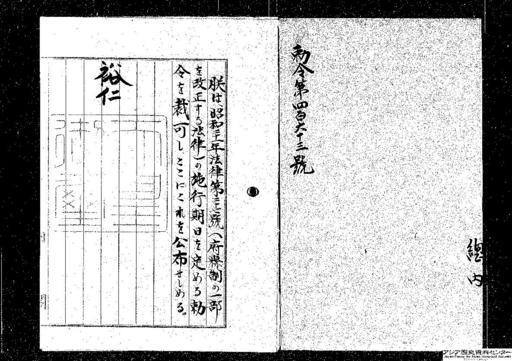 勅令第四百六十三號
總内
朕は昭和二十一年法律第二十七號（府縣制の一部
を改正する法律）の施行期日を定める勅
令を裁可し、ここにこれを公布せしめる。
裕仁
アジア歴史資料センター